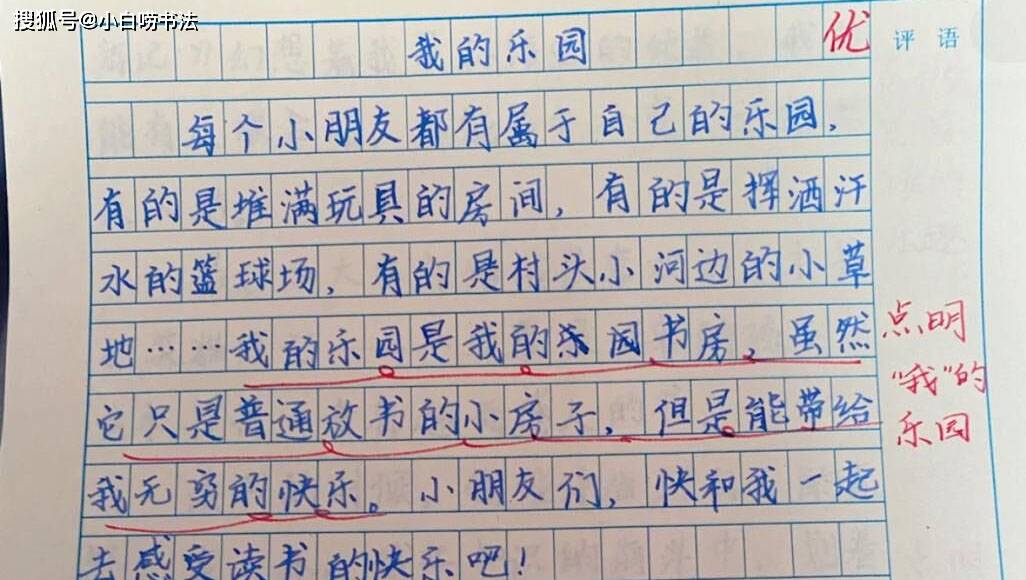 搜狐号@小白唠书法
我的乐园
优
评语
每个小朋友都有属于自己的乐园，
有的是堆满玩具的房间，有的是挥洒汗
水的篮球场，有的是村头小河边的小草
地……我的乐园是我的乐园书房，虽然
它只是普通放书的小房子，但是能带给
我无穷的快乐。小朋友们，快和我一起
去感受读书的快乐吧！
点明
“我”的
乐园